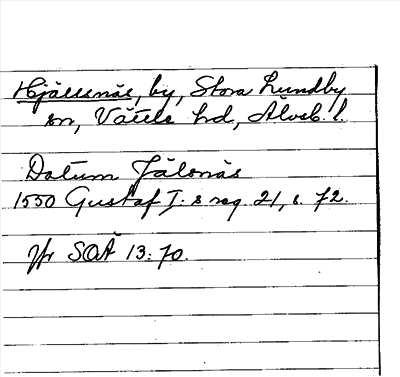 Hjällsnäs, by, Stora Lundby
sn, Vättle hd, Älvsb. l.
Datum Jälsnäs
1550 Gustaf I:s reg. 21, s. 72.
Jfr SOÄ 13:70.